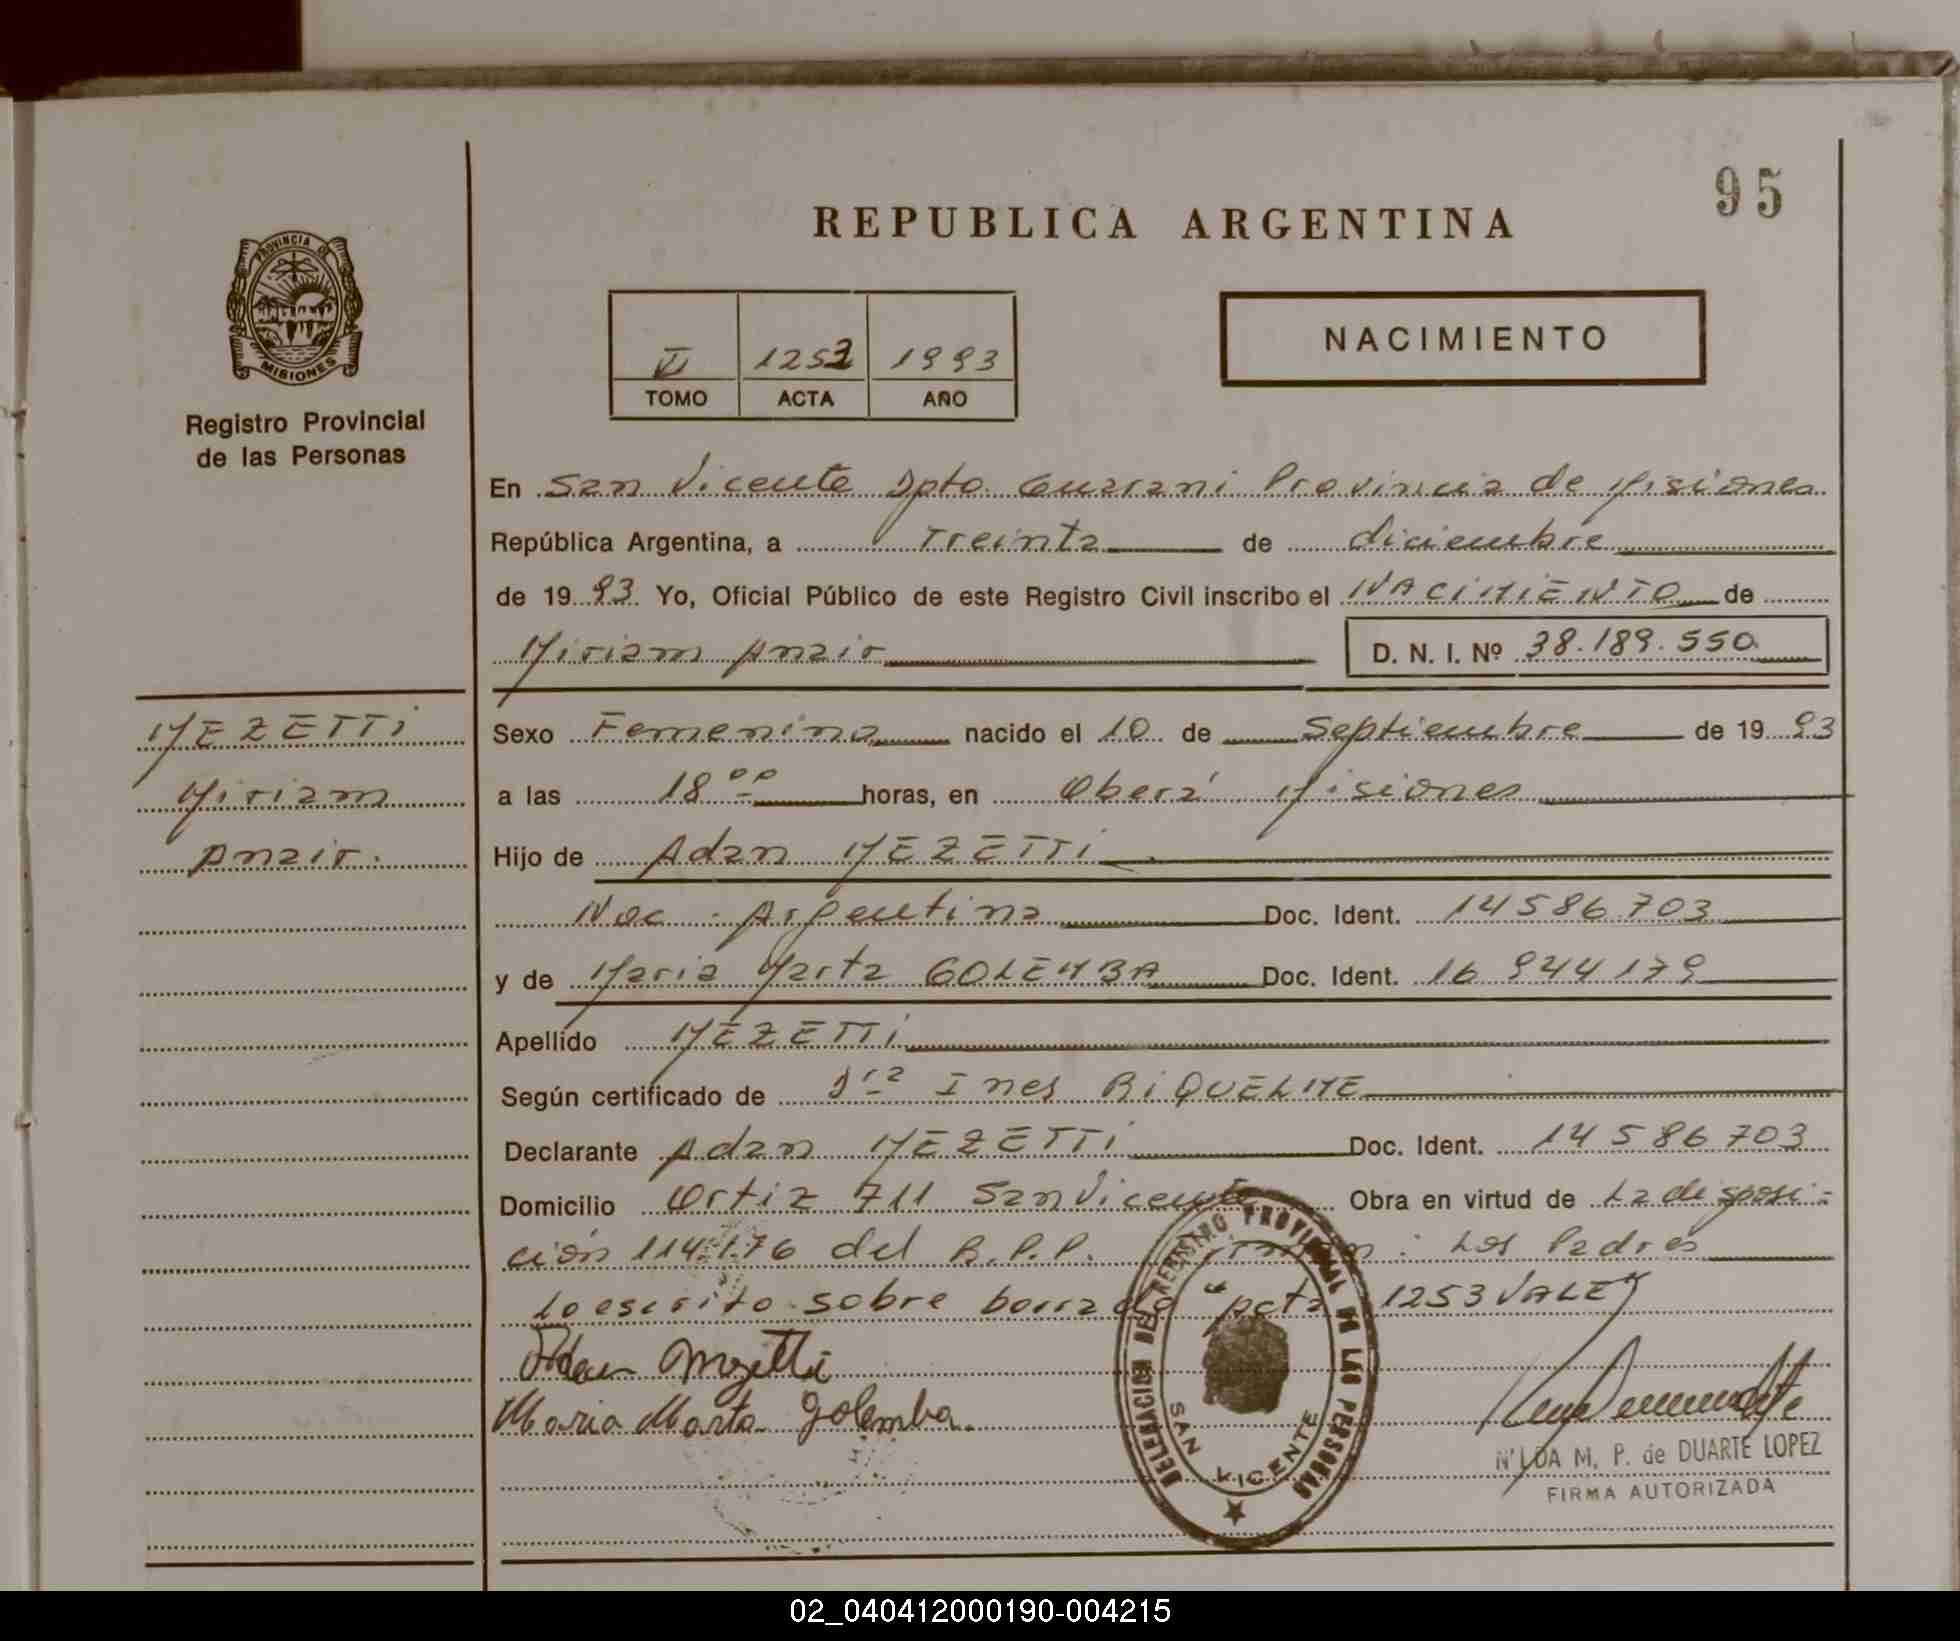 95
REPUBLICA ARGENTINA
PROVINCIA DE
MISIONES
Registro Provincial
de las Personas
VI 1253 1993
TOMO ACTA AÑO
NACIMIENTO
En San Vicente Dpto Guarani Provincia de Misiones
República Argentina, a Treinta de diciembre
de 19 93 Yo, Oficial Público de este Registro Civil inscribo el NACIMIENTO de
Miriam Anair D. N. I. Nº 38.189.550
MEZETTI
Miriam
Anair.
Sexo Femenino nacido el 10 de Septiembre de 19 93
a las 18 ºº horas, en Oberá Misiones
Hijo de Adan MEZETTI
Nac. Argentina Doc. Ident. 14586.703
y de Maria Marta GOLEMBA Doc. Ident. 16 944 179
Apellido MEZETTI
Según certificado de Dra Ines RIQUELME
Declarante Adan MEZETTI Doc. Ident. 14 586 703
Domicilio Ortiz 711 San Vicente Obra en virtud de La disposi-
ción 114/76 del R.P.P. Firman: Los Padres
Lo escrito sobre borrado "acta 1253 VALE"
Adan Mezetti
Maria Marta Golemba.
DELEGACION DEL REGISTRO PROVINCIAL DE LAS PERSONAS
SAN VICENTE
NILDA M. P. de DUARTE LOPEZ
FIRMA AUTORIZADA
02_040412000190-004215